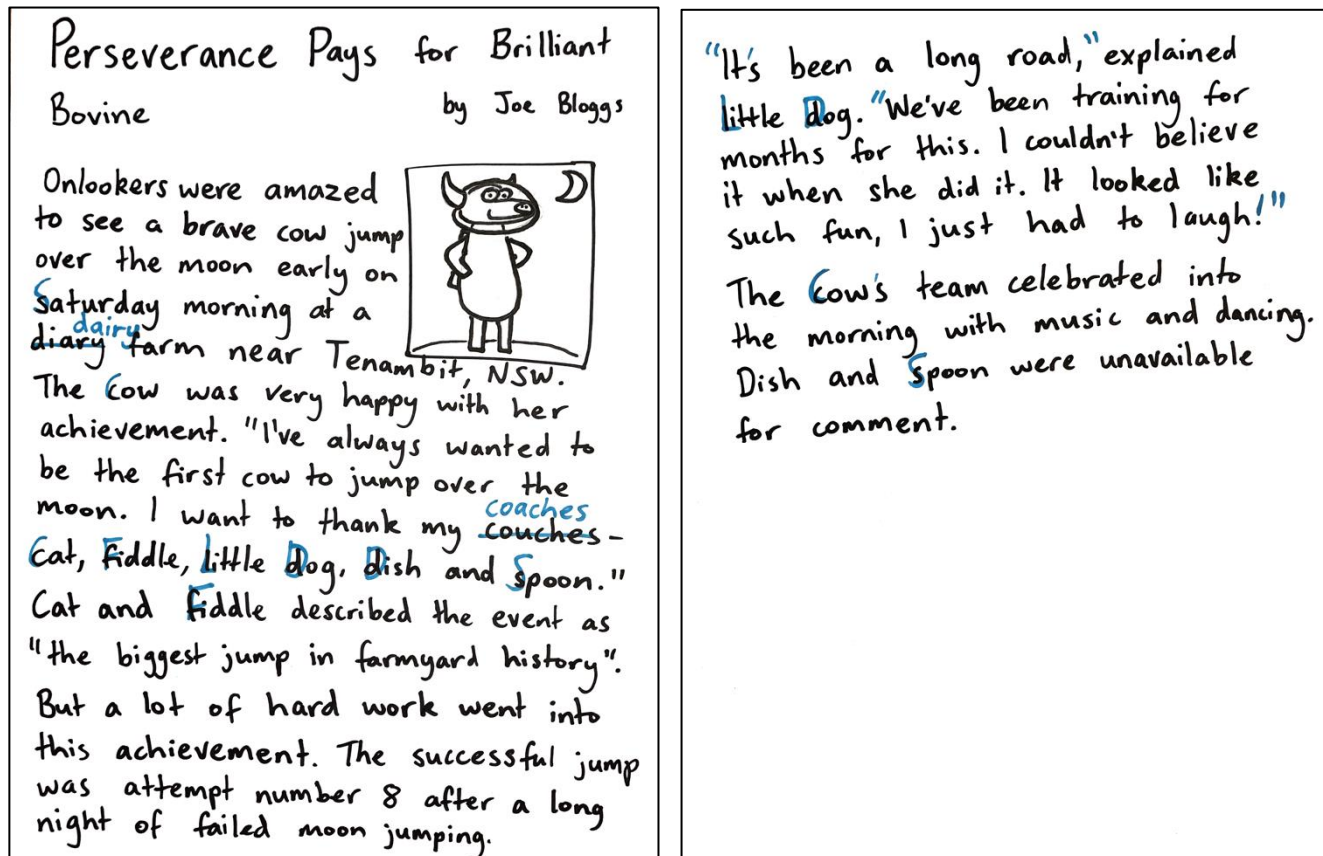 Perseverance Pays for Brilliant
Bovine by Joe Bloggs
Onlookers were amazed
to see a brave cow jump
over the moon early on
Saturday morning at a
dairy
diary farm near Tenambit, NSW.
The Cow was very happy with her
achievement. "I've always wanted to
be the first cow to jump over the
moon. I want to thank my couches –
coaches
Cat, Fiddle, Little Dog, Dish and Spoon."
Cat and Fiddle described the event as
"the biggest jump in farmyard history".
But a lot of hard work went into
this achievement. The successful jump
was attempt number 8 after a long
night of failed moon jumping.
"It's been a long road," explained
Little Dog. "We've been training for
months for this. I couldn't believe
it when she did it. It looked like
such fun, I just had to laugh!"
The Cow's team celebrated into
the morning with music and dancing.
Dish and Spoon were unavailable
for comment.